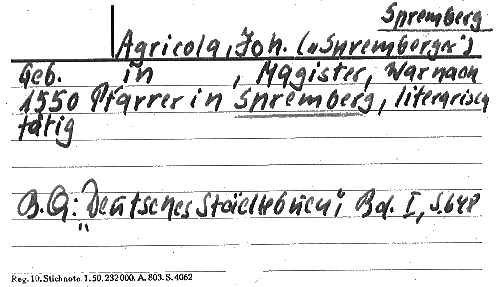 Spremberg
Agricola, Joh. („Spremberger")
Geb. in , Magister, War nach
1550 Pfarrer in Spremberg, literarisch
tätig
B.Q: „Deutsches Städtebuch", Bd. I, S. 648
Reg. 10. Stichnote. 1. 50. 232000. A. 803. S. 4062